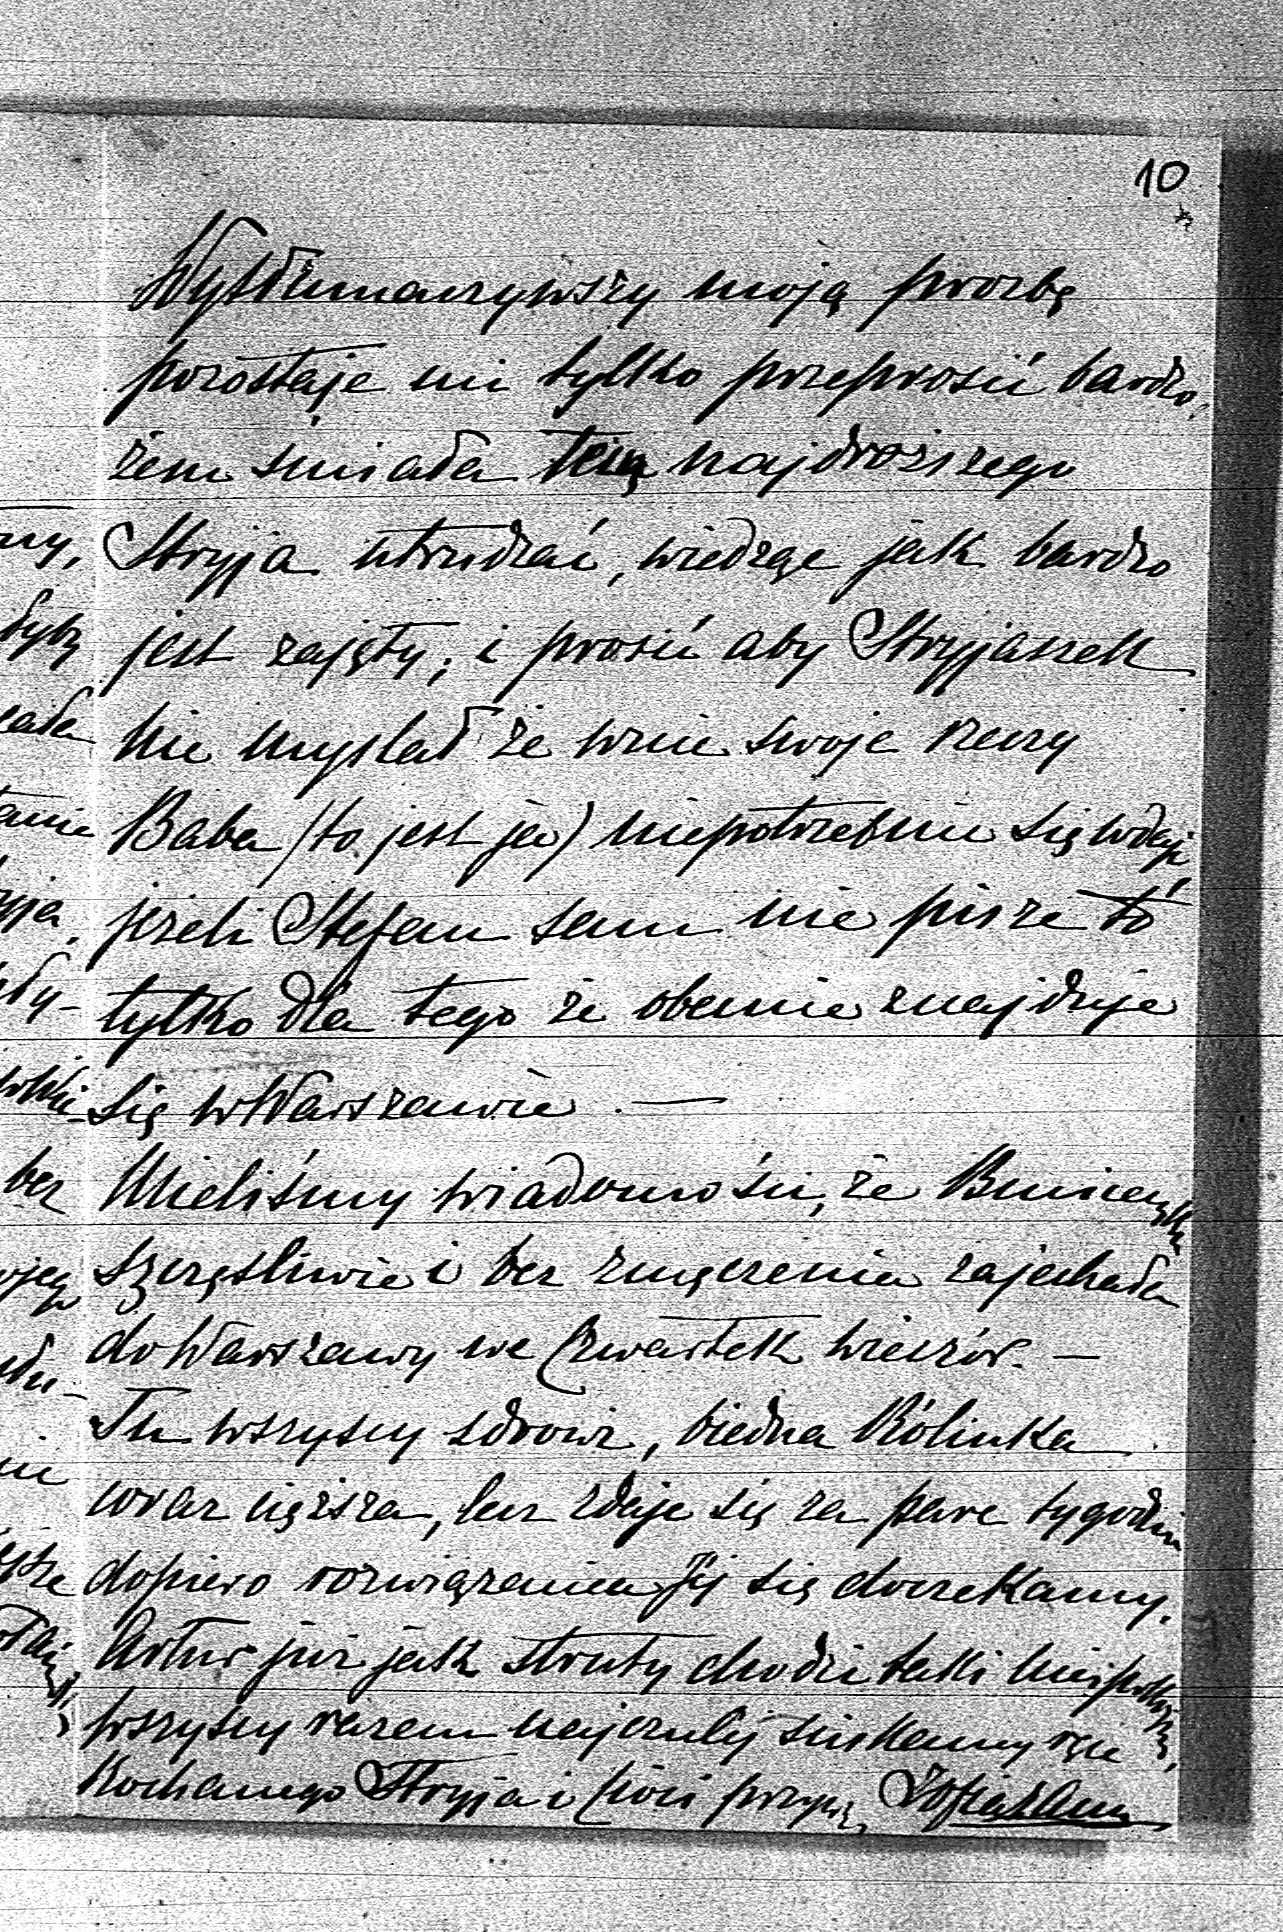 10
Wytłumaczywszy moją prozbę
pozostaje mi tylko przeprosić bardzo,
żem śmiała najdroższego
Stryja utrudzać, wiedząc jak bardzo
jest zajęty, i prosić aby Stryjaszek
nie myslał że w nie swoje rzeczy
Baba (to jest ja) niepotrzebnie się wdaje
jeżeli Stefan sam nie pisze to
tylko dla tego że obecnie znajduje
się w Warszawie. —
Mieliśmy wiadomości, że
szczęśliwie i bez zmęczenia zajechała
do Warszawy we Czwartek wieczór. —
Tu wszyscy zdrowi, biedna Rólinka
coraz cięższa, lecz zdaje się za parę tygodni
dopiero rozwiązania Jej się doczekamy.
Artur już jak struty chodzi taki niespokojny,
wszyscy razem najczulej ściskamy ręce
Kochanego Stryja i Cioci
ny,
bez